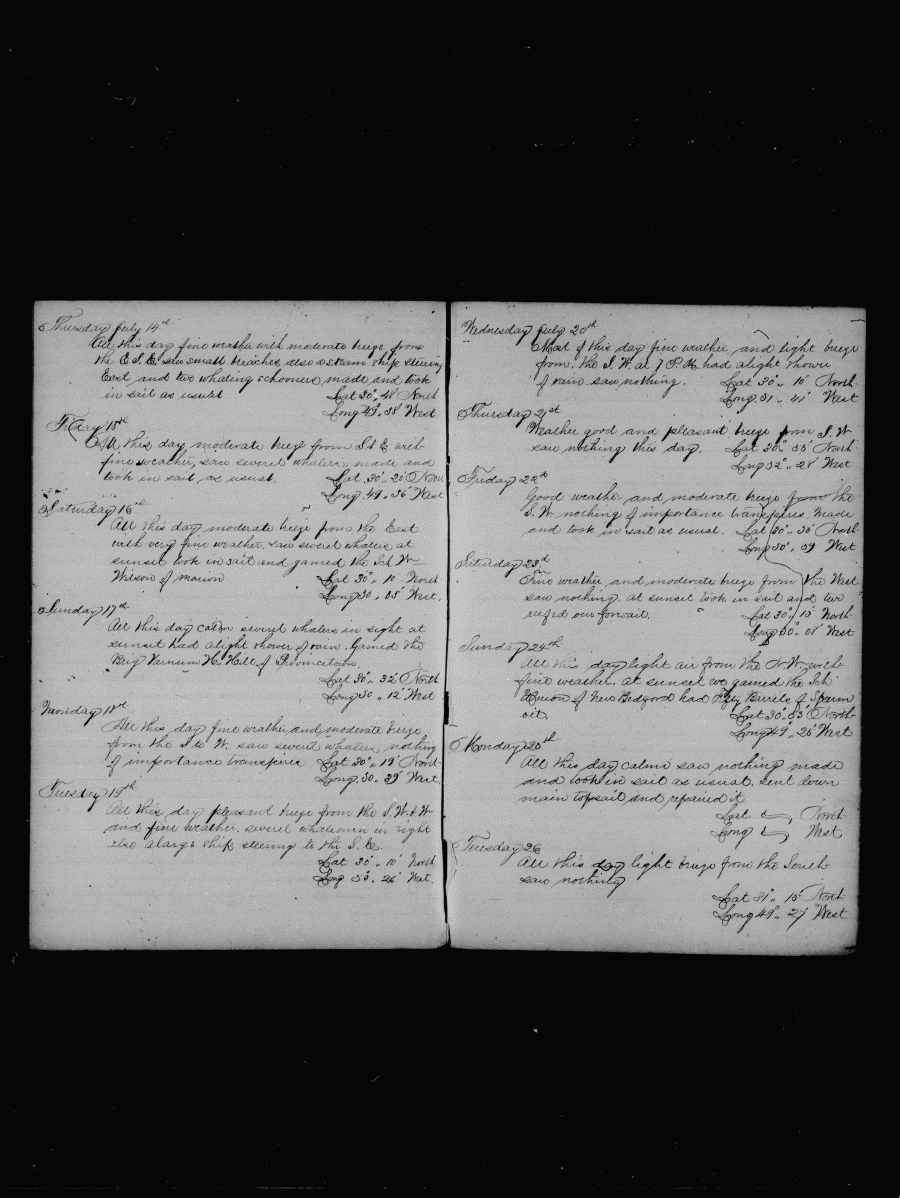 Thursday July 14th
All this day fine weather with moderate breeze from
the E.S.E. saw small breaches also a steam ship steering
East and two whaling schooners made and took
in sail as usual Lat 30°,, 48' North
Long 49°,, 38' West
Friday 15th
All this day moderate breeze from S & E with
fine weather, saw severel whalers, made and
took in sail, as usual. Lat 30°,, 20' North
Long 49,, 56' West
Saturday 16th
All this day moderate breeze from the East
with very fine weather, saw severel whalers at
sunset took in sail and gamed the Sch Wm
Wilson of Marion Lat 30°,, 10 North
Long 50,, 05' West.
Sunday 17th
All this day calm severel whalers in sight at
sunset had a light shower of rain. Gamed the
Brig Varnum H. Hill of Provincetown.
Lat 30°,, 32' North
Long 50,, 12' West
Monday 18th
All this day fine weather and moderate breeze
from the S to W. saw severel whalers, nothing
of importance transpires Lat 30°,, 19' North
Long. 50,, 39' West
Tuesday 19th
All this day pleasant breeze from the S. W. & W
and fine weather severel whalemen in sight
also a large ship steering to the S. E.
Lat 30°,, 10' North
Long 50°,, 26' West.
Wednesday July 20th
Most of this day fine weather and light breeze
from. the S. W. at 7 P.M. had a light shower
of rain saw nothing. Lat 30°,, 10' North
Long 51,, 41' West
Thursday 21st
Weather good and pleasant breeze from S. W
saw nothing this day. Lat 30°,, 55' North
Long 52°,, 28' West
Friday 22nd
Good weather and moderate breeze from the
S. W. nothing of importance transpires. Made
and took in sail as usual. Lat 30°,, 30' North
Long 50°,, 59 West
Saturday 23d
Fine weather and moderate breeze from the West
saw nothing. at sunset took in sail and
reefed our forsail. Lat 30°,, 15' North
Long 50°,, 01' West
Sunday 24th
All this day light air from the N. W. with
fine weather. at sunset we gamed the Sch
Union of New Bedford had Fifty Barrels of Sperm
oil. Lat 30°,, 53' North
Long 49°,, 26' West
Monday 25th
All this day calms saw nothing made
and took in sail as usual. sent down
main topsail and repaired it
Lat North
Long West
Tuesday 26
All this day light breeze from the South
saw nothing
Lat 31°,, 15' North
Long 49°,, 27' West